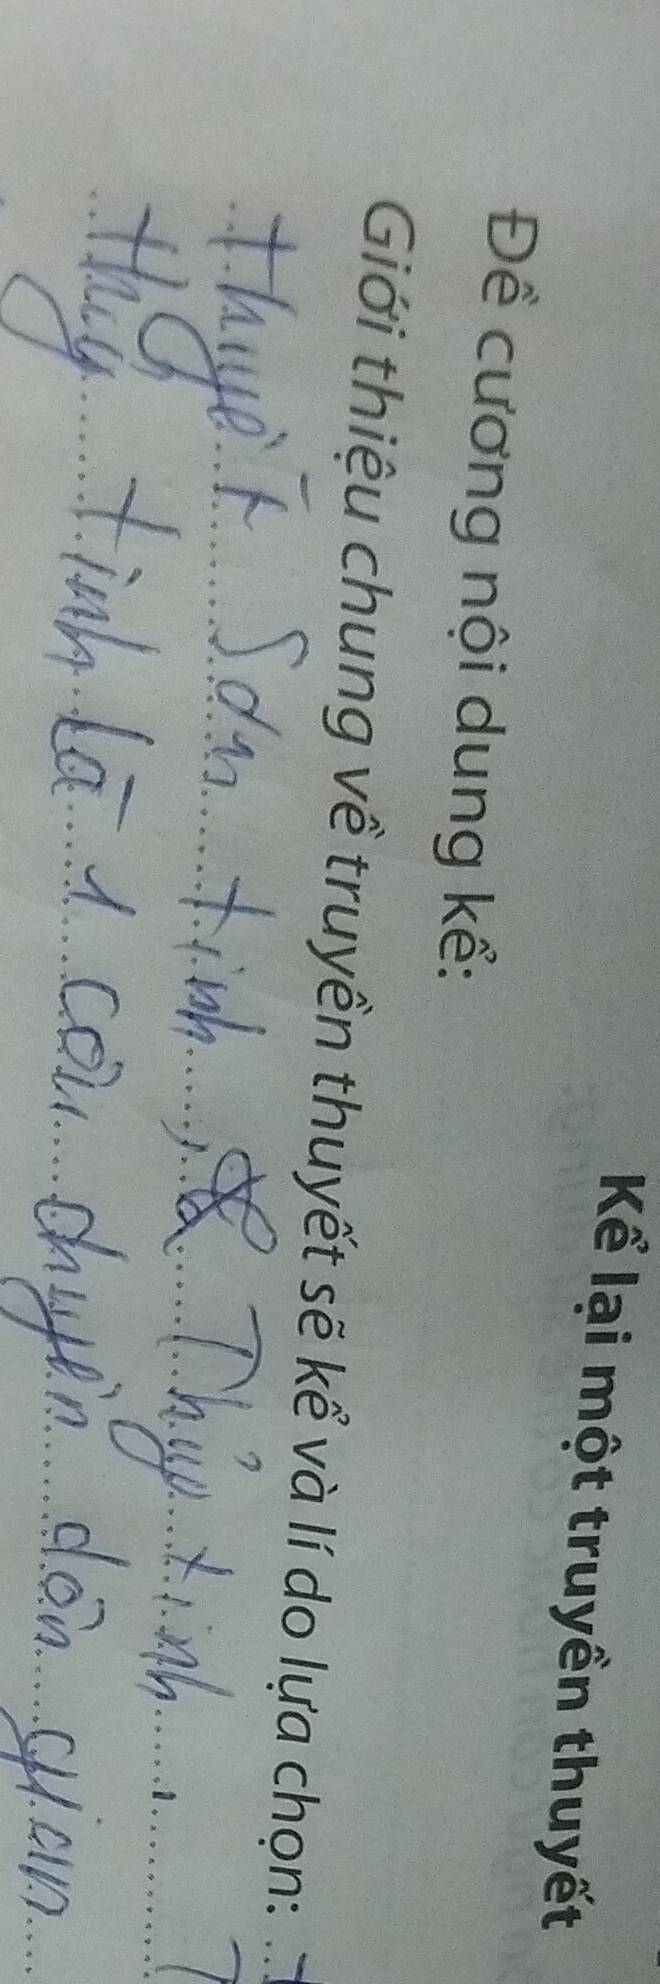 Kể lại một truyền thuyết
Đề cương nội dung kể:
Giới thiệu chung về truyền thuyết sẽ kể và lí do lựa chọn:
thuyết Sơn tinh, Thủy tinh
thuy tinh là 1 câu chuyện dân gian